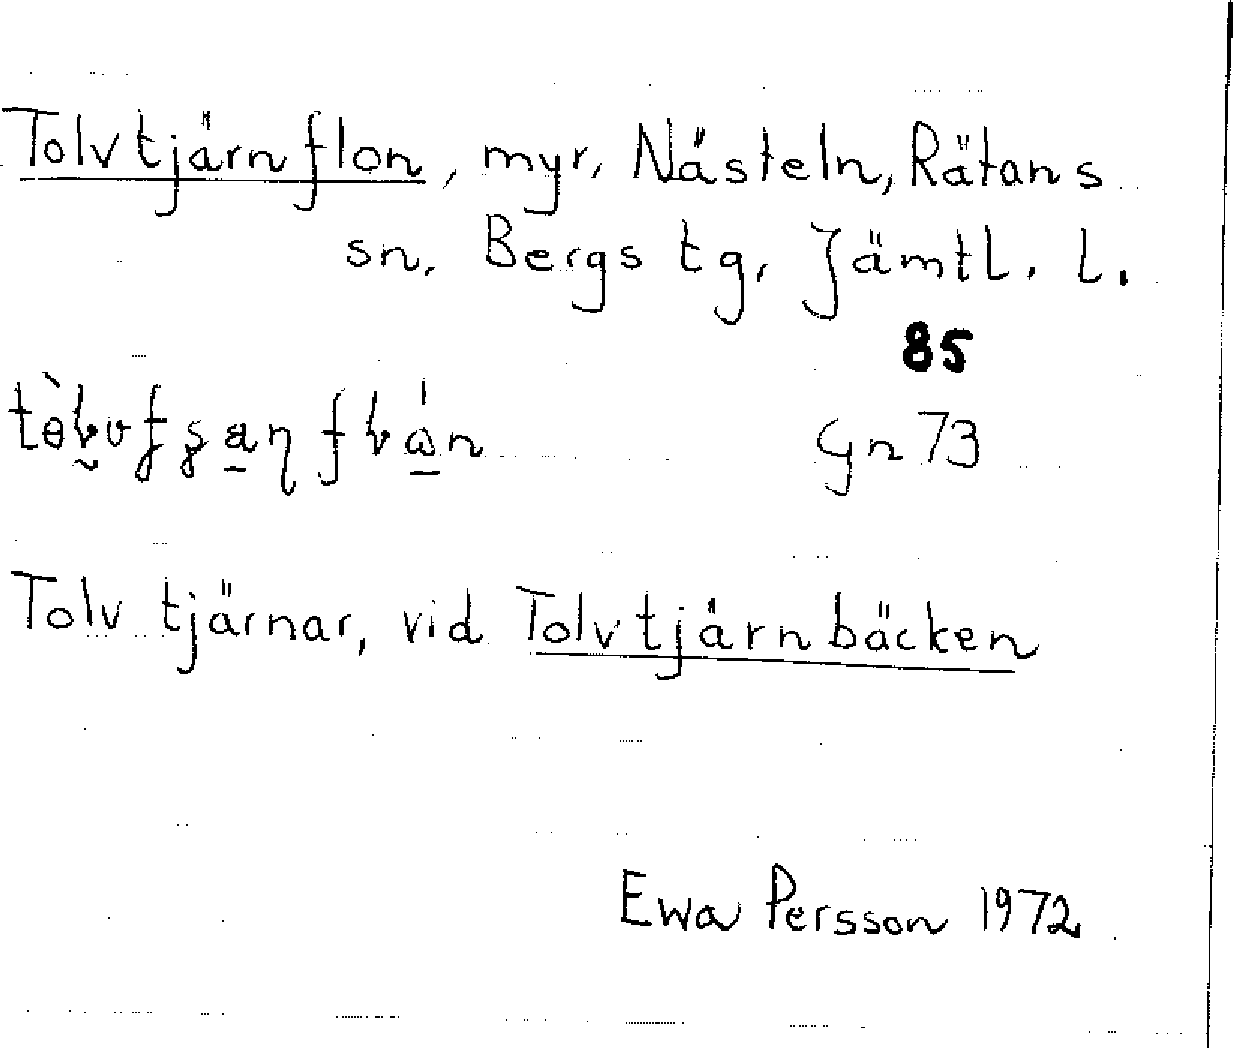 Tolvtjärnflon, myr, Nästeln, Rätans
sn, Bergs tg, Jämtl. l.
85
Gn 73
Tolv tjärnar, vid Tolvtjärnbäcken
Ewa Persson 1972